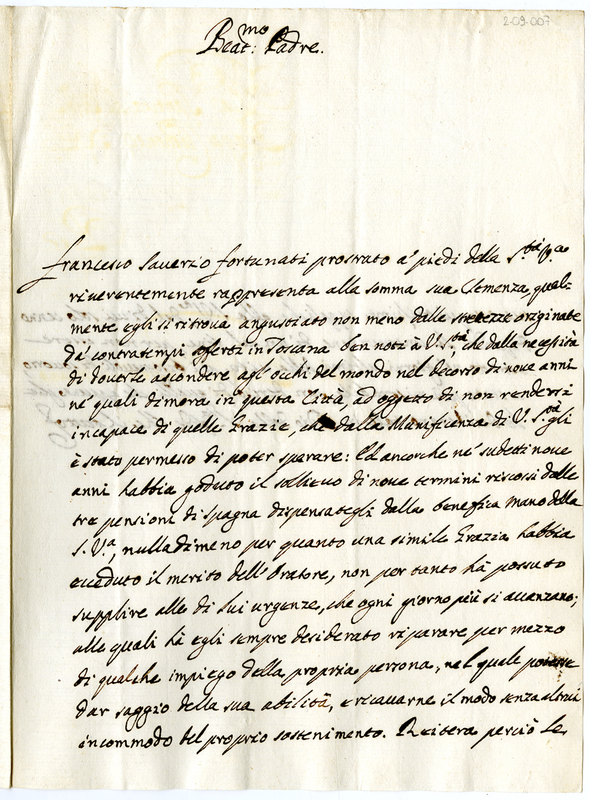 2-09-007
Beat:mo Padre.
Francesco Saverio Fortunati prostrato a' piedi della S.tà V.a
riverentemente rappresenta alla somma sua Clemenza, qual-
mente egli si ritrova angustiato non meno dalle strettezze originate
da' contratempi offerti in Toscana ben noti à V. S.tà, che dalla necessità
di doverle ascondere agl'occhi del mondo nel decorso di nove anni
né quali dimora in questa Città, ad oggetto di non rendersi
incapace di quelle Grazie, che dalla Munificenza di V. S.tà gli
è stato permesso di poter sperare: Ed ancorche né sudetti nove
anni habbia goduto il sollievo di nove termini riscossi dalle
tre pensioni di Spagna dispensategli dalla benefica mano della
S. V.a, nulladimeno per quanto una simile Grazia habbia
ecceduto il merito dell'Oratore, non per tanto hà possuto
supplire alle di lui urgenze, che ogni giorno più si avanzano;
alle quali hà egli sempre desiderato riparare per mezzo
di qualche impiego della propria persona, nel quale potesse
dar saggio della sua abilità, e ricavarne il modo senza altrui
incommodo del proprio sostenimento. Reitera perciò le